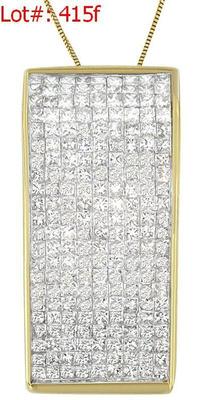 Lot#: 415f